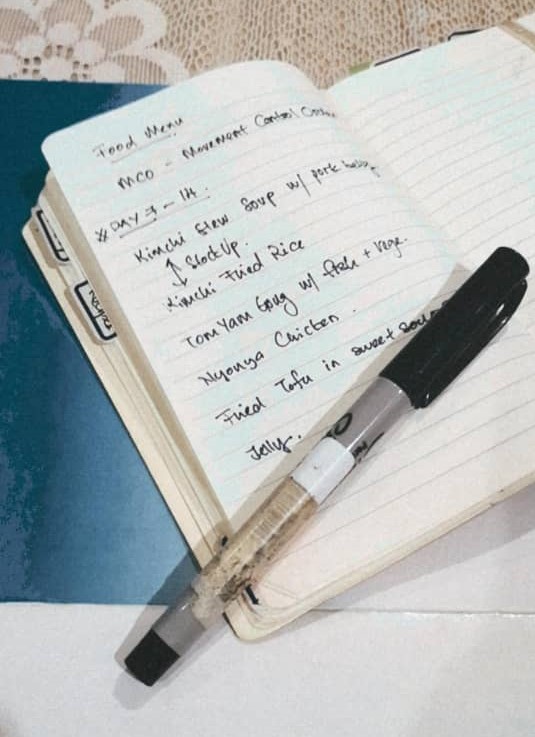 Food Menu
MCO - Movement Control Order
# DAY 7 - 14.
Kimchi Stew Soup w/ pork belly
↕ Stock Up.
Kimchi Fried Rice
Tom Yam Goug w/ fish + vege.
Nyonya Chicken.
Fried Tofu in sweet
Jelly.